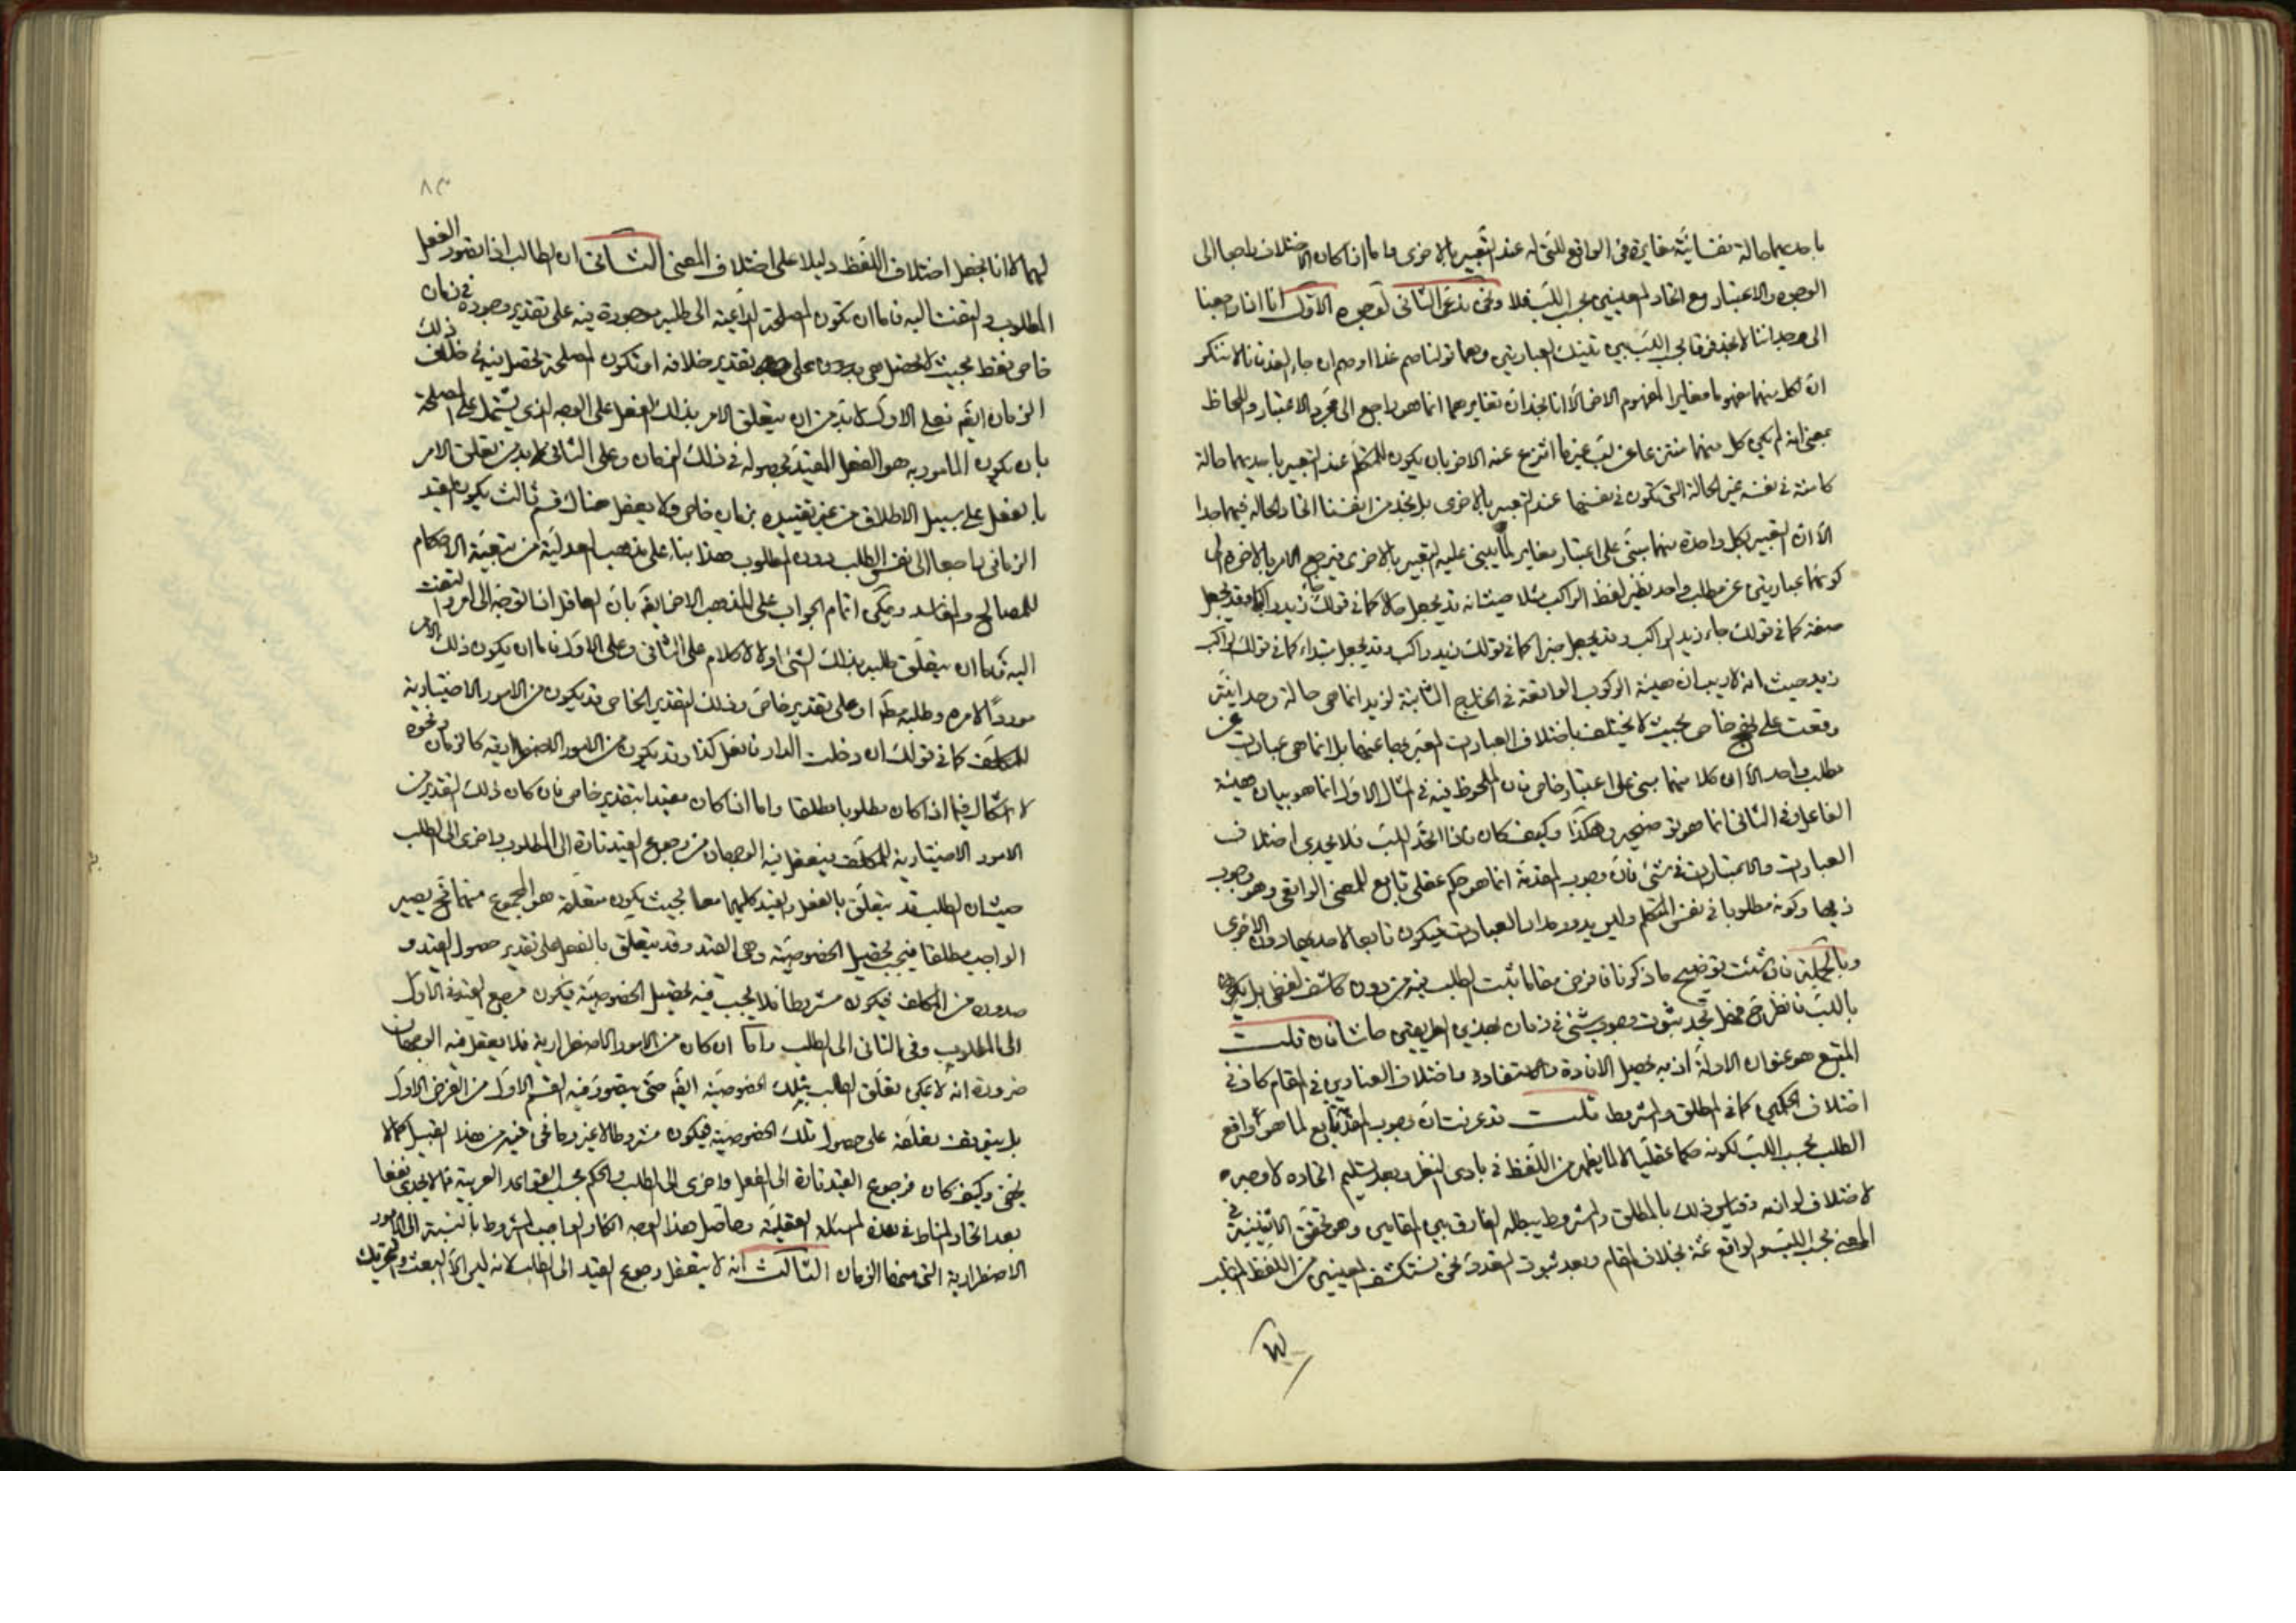 باحديهما حالة نفسانية مغايرة في الواقع للتي له عند التعبير بالاخرى واما اذا كان الاختلاف راجعا الى
الوجوه والاعتبار مع اتحاد المعنيين بحسب اللب فلا ونحن ندعى الثاني لوجوه الاول انا اذا راجعنا
الى وجداننا لا نجد فرقا بحسب اللب بين تينك العبارتين وهما قولنا صم غدا او صم ان جاء الغد فانا لا ننكر
ان لكل منهما مفهوما مغايرا لمفهوم الاخر الا انا نجد ان تغايرهما انما هو راجع الى مجرد الاعتبار واللحاظ
بمعنى انه لم يكن كل منهما منتزعا عن لب غير ما انتزع عنه الاخر بان يكون للمتكلم عند التعبير باحديهما حالة
كامنة في نفسه غير الحالة التي تكون في نفسه عند التعبير بالاخرى بل نجد من انفسنا اتحاد الحالة فيهما جدا
الا ان التعبير بكل واحدة منهما مبنى على اعتبار مغاير لما يبنى عليه التعبير بالاخرى فيرجع الامر بالاخرة الى
كونهما عبارتين عن مطلب واحد نظير لفظ الراكب مثلا حيث انه قد يجعل حالا كما في قولك جاء زيد راكبا وقد يجعل
صفة كما في قولك جاء زيد الراكب وقد يجعل خبرا كما في قولك زيد راكب وقد يجعل مبتداء كما في قولك الراكب
زيد حيث انه لا ريب ان هيئة الركوب الواقعة في الخارج الثابتة لزيد انما هي حالة وحدانية
وقعت على نهج خاص بحيث لا يختلف باختلاف العبارات المعبر بها عنها بل انما هي عبارات عن
مطلب واحد الا ان كلا منها مبنى على اعتبار خاص فان الملحوظ فيه في المثال الاول انما هو بيان هيئة
الفاعل وفي الثاني انما هو توضيحه وهكذا وكيف كان فاذا اتحد اللب فلا يجدى اختلاف
العبارات والاعتبارات في شئ فان وجوب المقدمة انما هو حكم عقلي تابع للمعنى الواقعي وهو وجوب
ذيها وكونه مطلوبا في نفس المتكلم وليس يدور مدار العبارات فيكون تابعا لاحديها دون الاخرى
وبالجملة فان شئت توضيح ما ذكرنا فافرض مقاما ثبت الطلب فيه من دون كاشف لفظي بل
باللب فانظر ح فهل تجد ثبوت وجوب شئ في زمان بهذين الطريقين حاشا فان قلت
المتبع هو عنوان الادلة اذ به تحصيل الافادة والاستفادة واختلاف العناوين في المقام كاف في
اختلاف الحكمين كما في المطلق والمشروط قلت قد عرفت ان وجوب المقدمة تابع لما هو الواقع
الطلب بحسب اللب لكونه حكما عقليا لا لما يظهر من اللفظ في بادى النظر وبعد تسليم اتحاده لا وجه
لاختلاف لوازمه وقياس ذلك بالمطلق والمشروط يبطله الفارق بين المقامين وهو تحقق الاثنينية في
المعنى بحسب اللب والواقع ثمة بخلاف المقام وبعد ثبوت التعدد نحن نستكشف المعنيين من اللفظ
لهما لا انا نجعل اختلاف اللفظ دليلا على اختلاف المعنى الثاني ان الطالب اذا تصور الفعل
المطلوب والتفت اليه فاما ان تكون المصلحة الداعية الى طلبه موجودة فيه على تقدير وجوده في زمان
خاص فقط بحيث لا تحصل هي بدونه على تقدير خلافه او تكون المصلحة تحصل فيه في خلاف ذلك
الزمان ايضا فعلى الاول لا بد من ان يتعلق الامر بذلك الفعل على الوجه الذى يشتمل على المصلحة
بان يكون المامور به هو الفعل المقيد بحصوله في ذلك الزمان وعلى الثاني لا بد من تعلق الامر
بالفعل على سبيل الاطلاق من غير تقييده بزمان خاص ولا يعقل هناك قسم ثالث يكون القيد
الزماني راجعا الى نفس الطلب دون المطلوب هذا بناء على مذهب العدلية من تبعية الاحكام
للمصالح والمفاسد ويمكن اتمام الجواب على المذهب الاخر ايضا بان العاقل اذا توجه الى امر والتفت
اليه فاما ان يتعلق طلبه بذلك الشئ او لا لا كلام على الثاني وعلى الاول فاما ان يكون ذلك الامر
موردا لامره وطلبه مط او على تقدير خاص وذلك التقدير الخاص قد يكون من الامور الاختيارية
للمكلف كما في قولك ان دخلت الدار فافعل كذا وقد يكون من الامور الاضطرارية كالزمان ونحوه
لا اشكال فيما اذا كان مطلوبا مطلقا واما اذا كان مقيدا بتقدير خاص فان كان ذلك التقدير من
الامور الاختيارية للمكلف فيتعقل فيه الوجهان من رجوع القيد تارة الى المطلوب واخرى الى الطلب
حيث ان الطلب قد يتعلق بالفعل والقيد كليهما معا بحيث يكون متعلقه هو المجموع منهما فح يصير
الواجب مطلقا فيجب تحصيل الخصوصية وهي القيد وقد يتعلق بالفعل على تقدير حصول القيد و
صدوره من المكلف فيكون مشروطا فلا يجب فيه تحصيل الخصوصية فيكون مرجع القيد في الاول
الى المطلوب وفي الثاني الى الطلب واما ان كان من الامور الاضطرارية فلا يعقل فيه الوجهان
ضرورة انه لا يمكن تعلق الطلب بتلك الخصوصية ايضا حتى يتصور فيه القسم الاول من الفرض الاول
بل يتوقف تعلقه على حصول تلك الخصوصية فيكون مشروطا لا غير وما نحن فيه من هذا القبيل كما لا
يخفى وكيف كان فرجوع القيد تارة الى الفعل واخرى الى الطلب والحكم بحسب القواعد العربية مما لا يجدى نفعا
بعد اتحاد المناط في هذه المسئلة العقلية وحاصل هذا الوجه انكار الواجب المشروط بالنسبة الى الامور
الاضطرارية التي منها الزمان الثالث انه لا يتعقل رجوع القيد الى الطلب لانه ليس الا البعث والتحريك